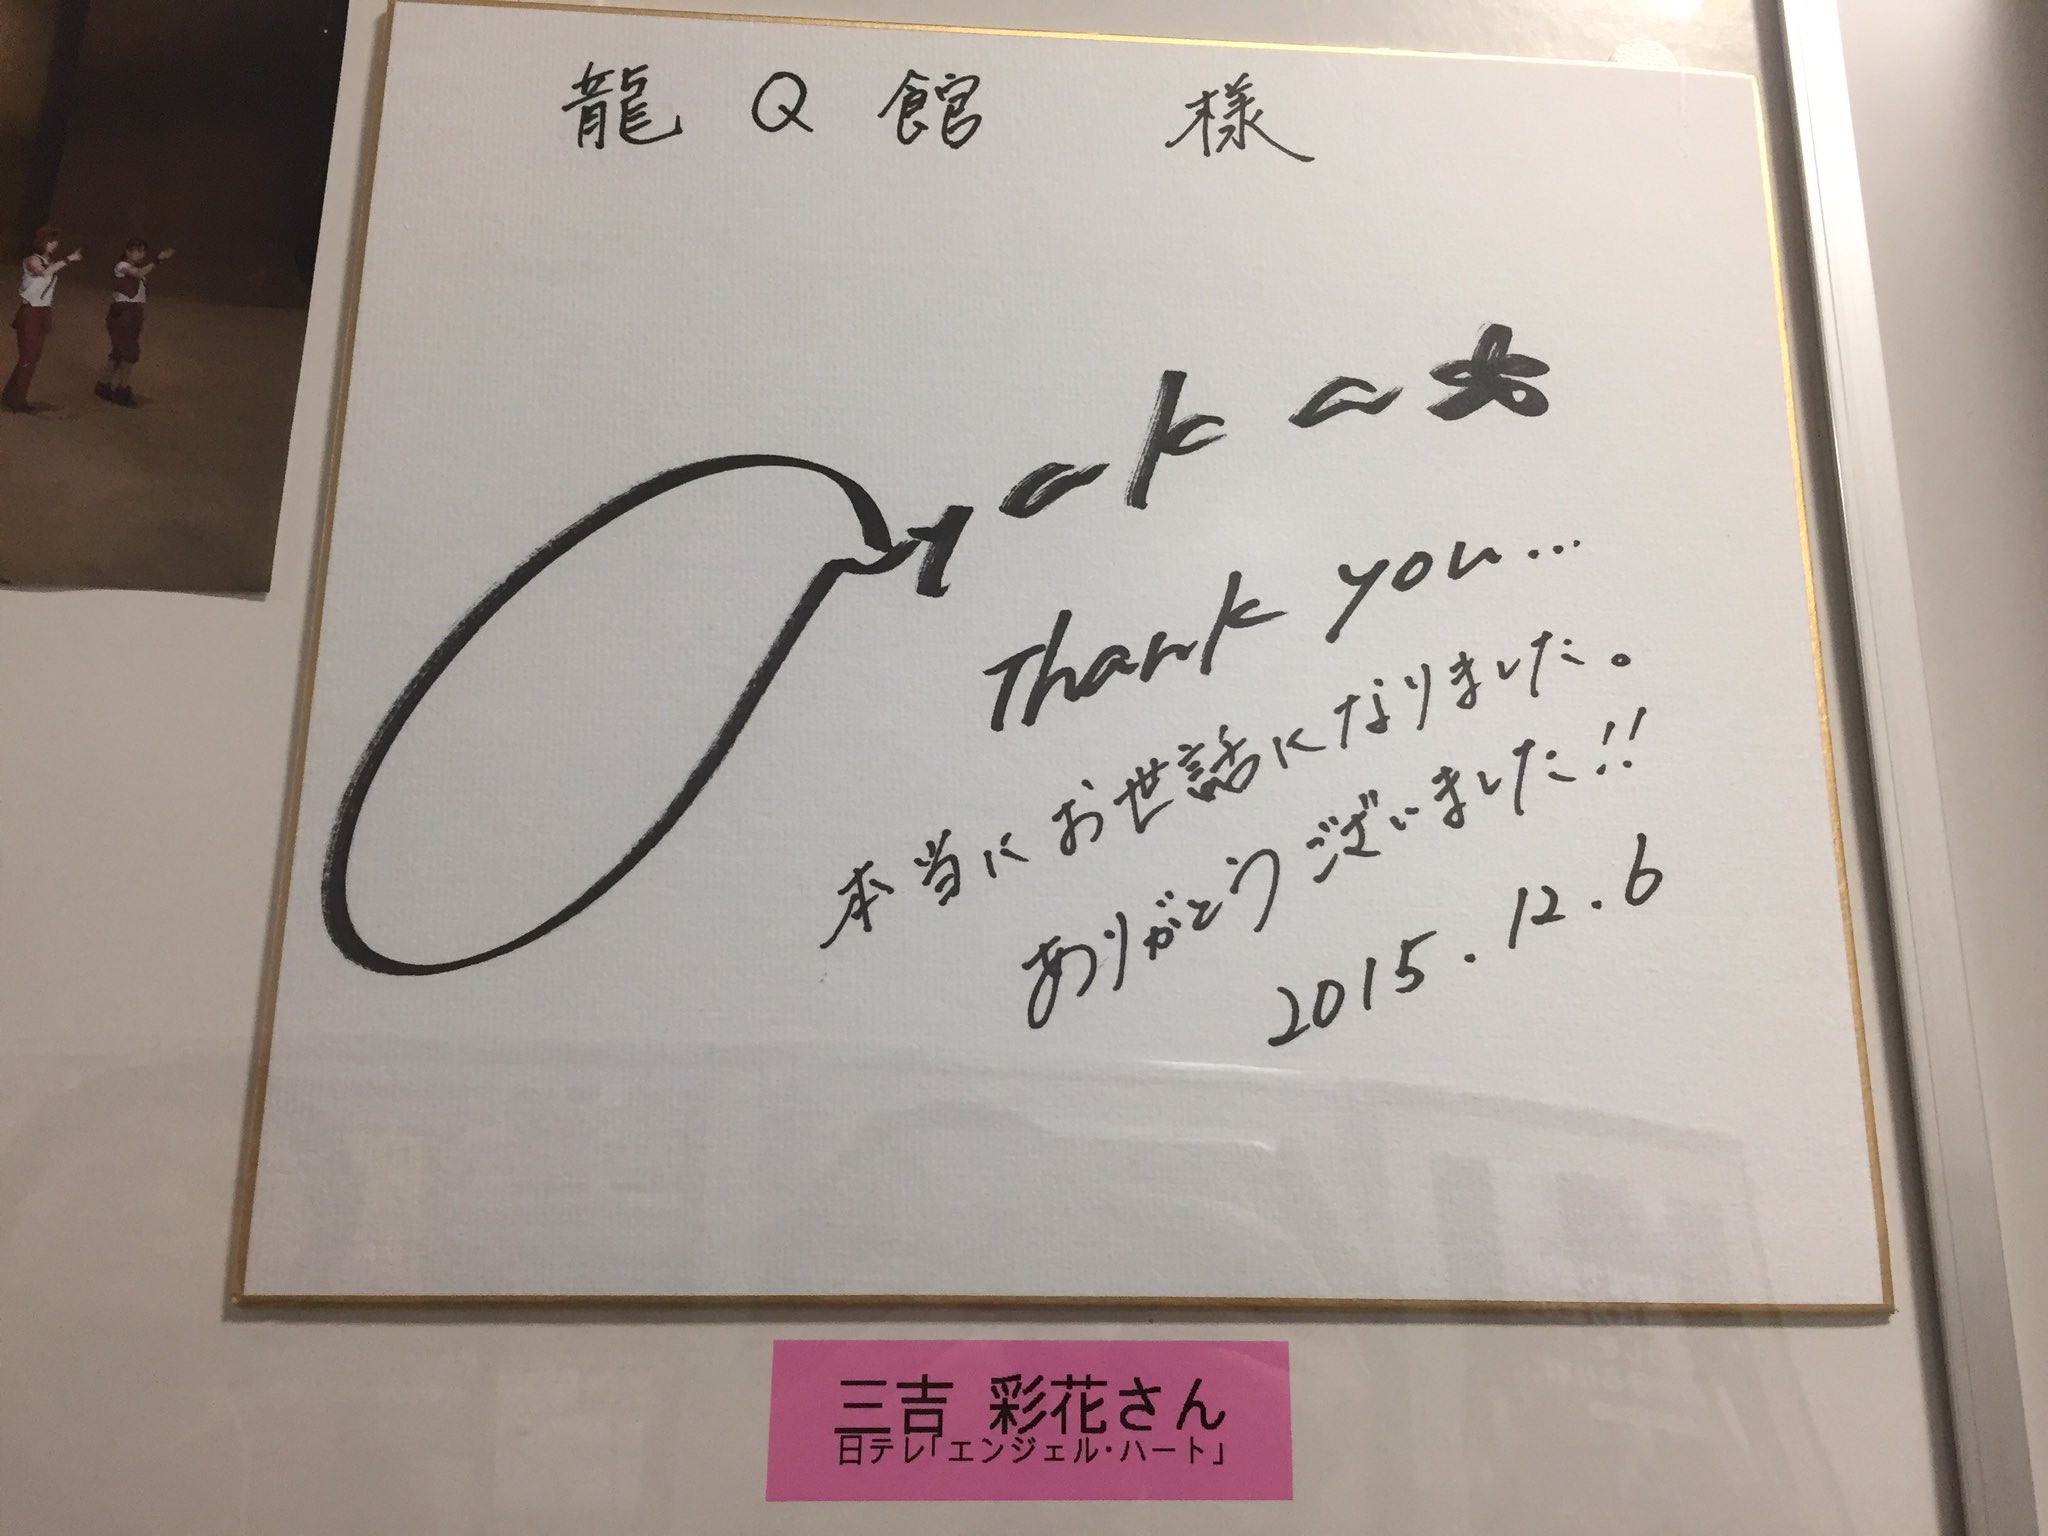 龍Q館 様
Ayaka
Thank you...
本当にお世話になりました。
ありがとうございました!!
2015.12.6
三吉 彩花さん
日テレ「エンジェル・ハート」